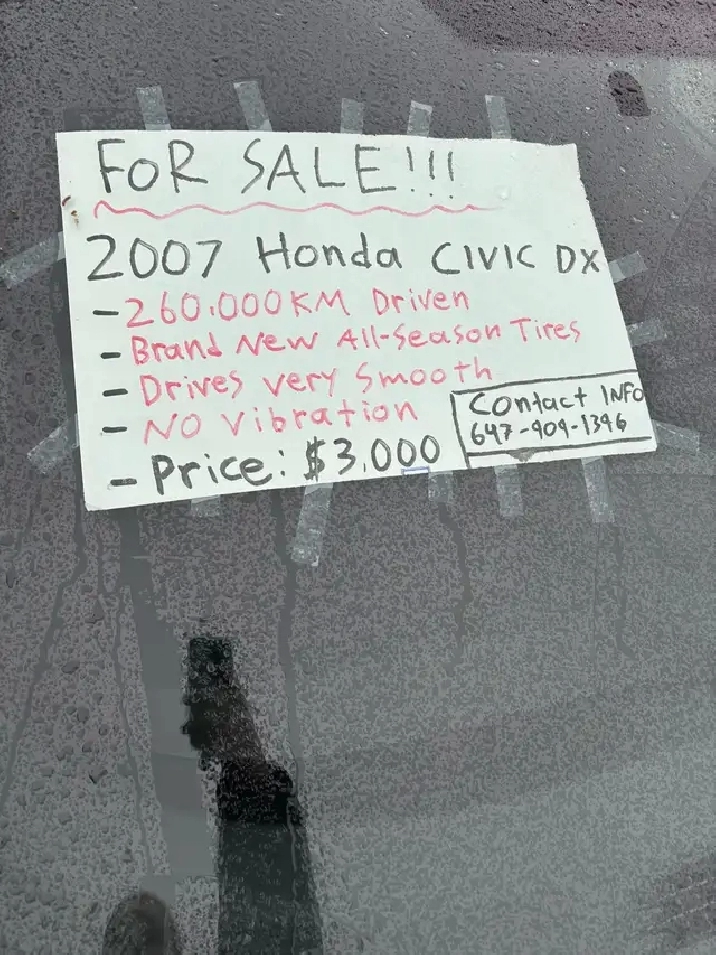 FOR SALE!!!
2007 Honda CIVIC DX
- 260.000KM Driven
- Brand New All-Season Tires
- Drives very Smooth
- NO Vibration
- Price: $3,000
Contact INFO
647-404-1396